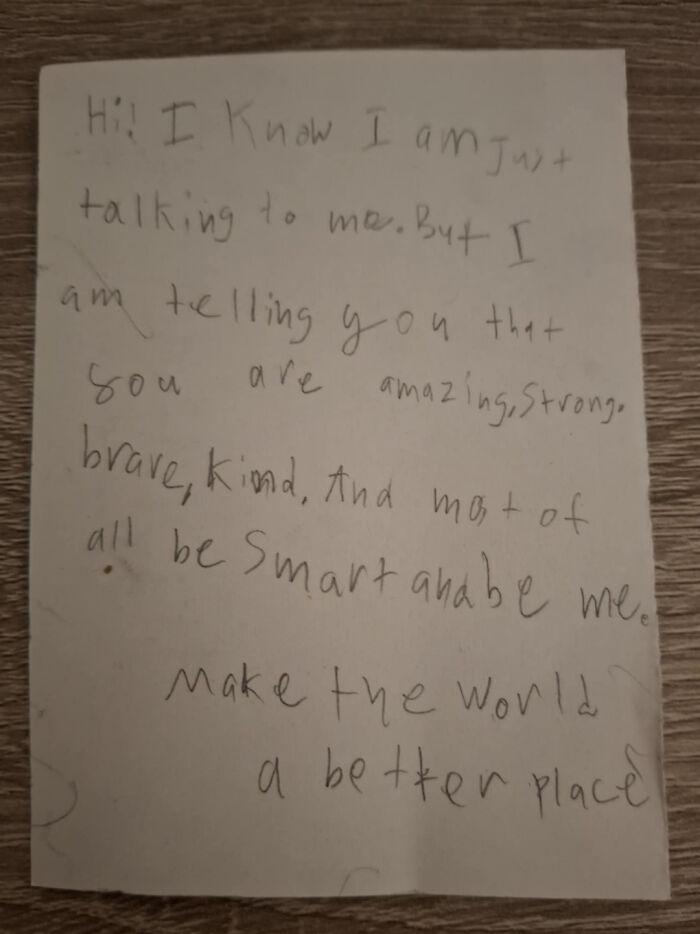 Hi! I Know I am Just
talking to me. But I
am telling you that
you are amazing, Strong.
brave, Kind, And most of
all be Smart and be me.
Make the World
a better place